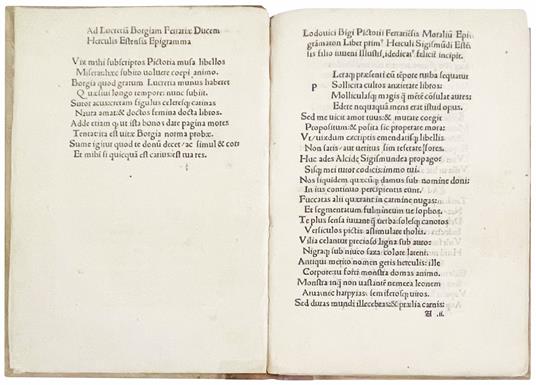 Ad Lucretiā Borgiam Ferrariæ Ducem
Herculis Estensis Epigramma
Vix mihi subscriptos Pictoria musa libellos
Miserat: hæc subito uoluere coepi animo.
Borgia quod gratum Lucretia munus haberet
Quæsiui longo tempore: nunc subiit.
Sutor acus: cretam figulus celeresq; carinas
Naura amat: & doctos femina docta libros.
Adde etiam q ut ista bonos date pagina mores
Tentat: ita est uitæ Borgia norma probæ.
Sume igitur quod te donū decet: ac simul & cor:
Et mihi si quicquā est carius: est tua res.
Lodouici Bigi Pictorii Ferrariēsis Moraliū Epi
grāmaton Liber prim⁹ Herculi Sigismūdi Estē
sis filio iuueni Illustri, dedicat⁹ felicit incipit.
Leraq; præsenti cū tēpore turba sequatur
P
Sollicita cultos anxietate libros:
Molliculasq; magis q mētē cōsulat aures:
Edere nequaquā mens erat istud opus.
Sed me uicit amor tuus: & mutare coegit
Propositum: & posita sic properare mora:
Ve,uixdum correptis emendatisq; libellis
Non satis: aut uersus sim referare fores.
Huc ades Alcidę Sigismundea propago:
Sisq; mei tutor codicis: immo tui.
Nos siquidem quæcūq; damus sub nomine doni:
In ius continuo percipientis eunt.
Fuccatas alii quærant in carmine nugas:
Et segmentatum fulmineumue lophon.
Te plus sensa iuuant q uerba: soles q; canoros
Versiculos pictis: assimulare tholis.
Vilia celantur precioso ligna sub auro:
Nigraq; sub niueo saxa colore latent.
Antiqui merito nomen geris herculis: ille
Corpore: tu forti monstra domas animo.
Monstra inq non uastantē nemeea leonem
Arua: nec harpyias: semiferosq; uiros.
Sed duras mundi illecebras: & prælia carnis:
A .ii.